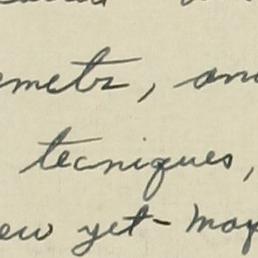 emetz, and
tecniques,
ew yet - may